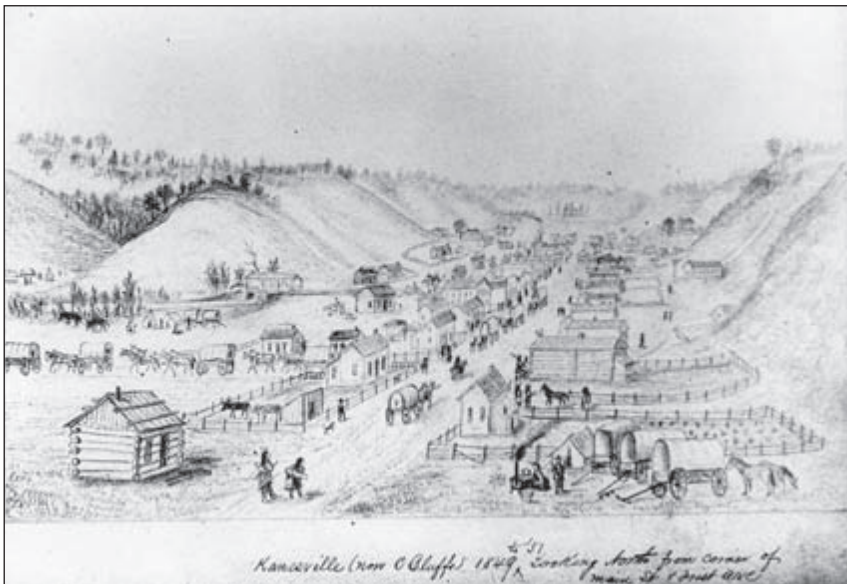 to '51
Kanesville (now C Bluffs) 1849, Looking North from corner of
main St & First ave